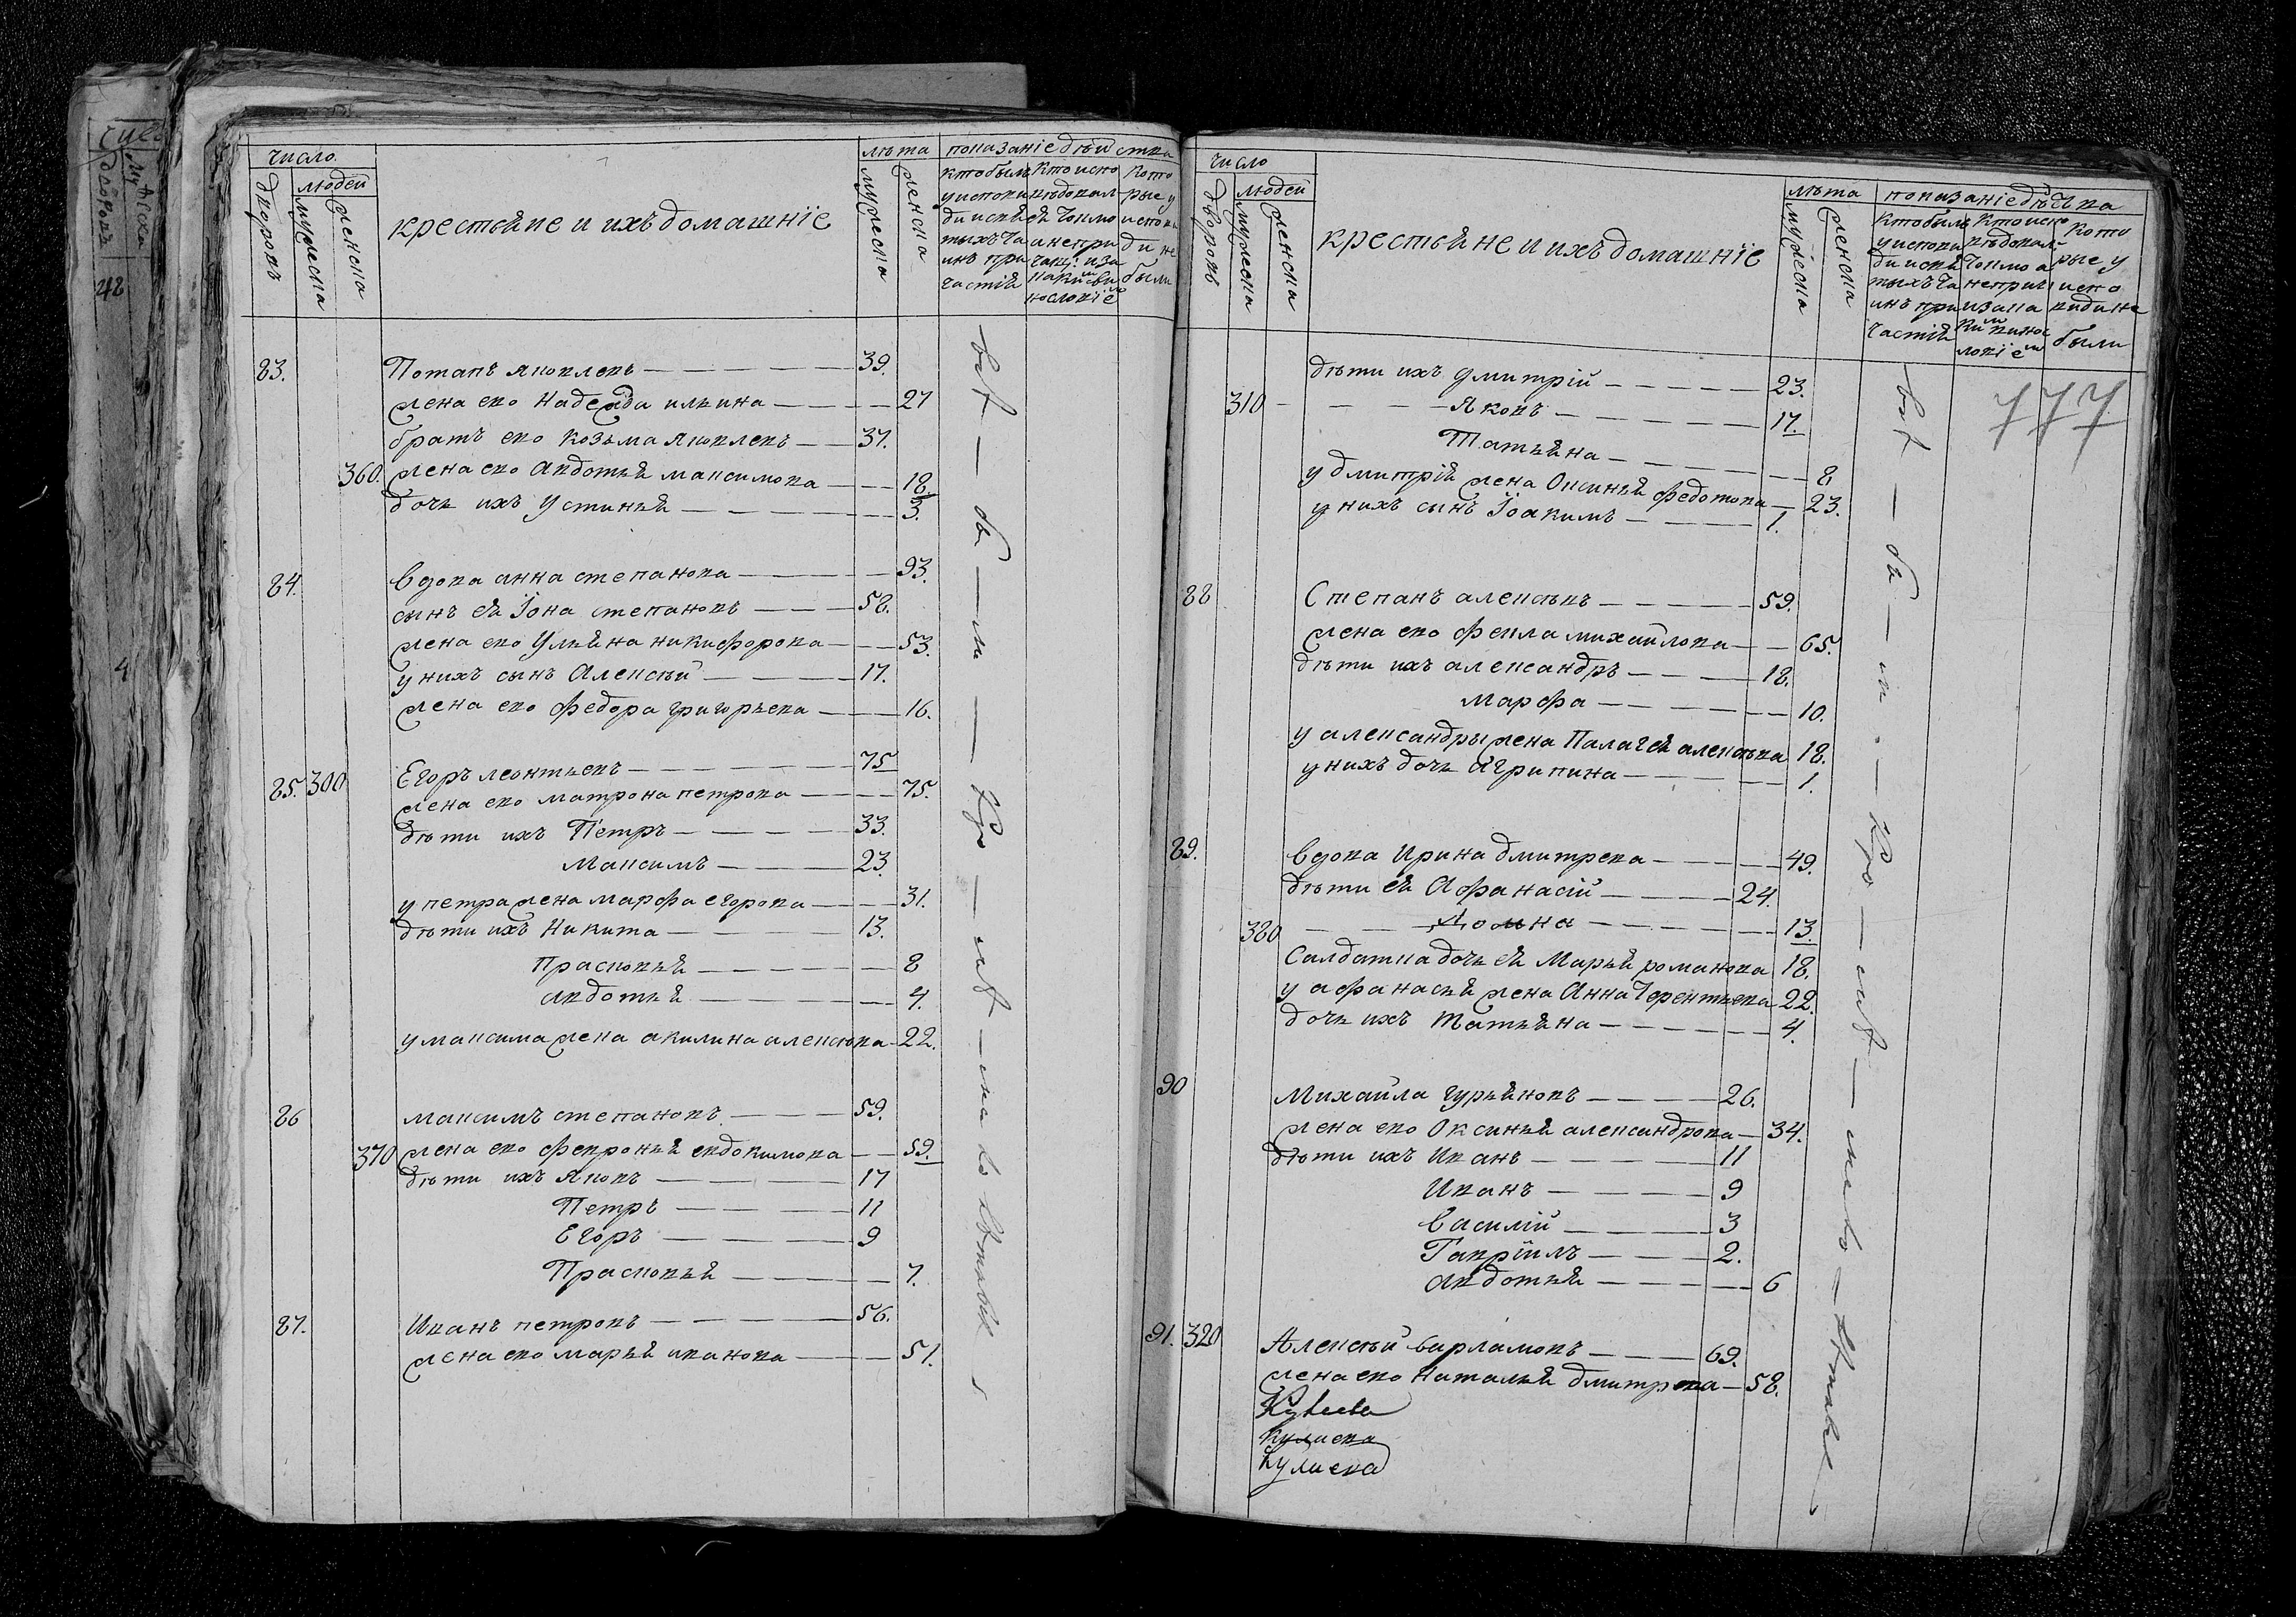 число
лѣта показаніе дѣйства
дворовъ
людей
мужеска
женска
крестьяне и ихъ домашніе
мужеска
женска
кто былъ у исповѣди и святыхъ таинъ причастія
кто исповѣдовался токмо а не причащ: и за какимъ винословіемъ
которые у исповѣди не были
83. Потапъ яковлевъ — 39.
жена ево Надежда ильина — 27
братъ ево козьма яковлевъ — 37.
360. жена ево Авдотья максимова — 18.
дочь ихъ Устинья — 3.
84. вдова анна степанова — 93.
сынъ ея Іона степановъ — 58.
жена ево Ульяна никифорова — 53.
у нихъ сынъ Алексѣй — 17.
жена ево федора григорьева — 16.
85. 300 Егоръ леонтьевъ — 75
жена ево матрона петрова — 75.
дѣти ихъ Петръ — 33.
Максимъ — 23.
у петра жена марфа егорова — 31.
дѣти ихъ Никита — 13.
Прасковья — 8
авдотья — 4.
у максима жена акилина алексѣва — 22.
86 максимъ степановъ — 59.
370 жена ево февронья евдокимова — 59.
дѣти ихъ Яковъ — 17
Петръ — 11
Егоръ — 9
Прасковья — 7.
87. Иванъ петровъ — 56.
жена ево марья иванова — 51.
число
лѣта показаніе дѣйства
дворовъ
людей
мужеска
женска
крестьяне и ихъ домашніе
мужеска
женска
кто былъ у исповѣди и святыхъ таинъ причастія
кто исповѣдовался токмо а не прич: и за какимъ винословіемъ
которые у исповѣди не были
777
дѣти ихъ дмитрій — 23.
310 — Яковъ — 17.
Татьяна — 8
у дмитрія жена Оксинья федотова — 23.
у нихъ сынъ Іоакимъ — 1.
88 Степанъ алексѣвъ — 59.
жена ево фекла михайлова — 65.
дѣти ихъ александръ — 18.
марфа — 10.
у александры жена Палагея алексѣва 18.
у нихъ дочь агрипина — 1.
89. вдова Ирина дмитрева — 49.
дѣти ея Афанасій — 24.
380 — Домна — 13.
Салдатка дочь ея Марья романова 18.
у афанасья жена Анна терентьева 22.
дочь ихъ татьяна — 4.
90 Михайла гурьяновъ — 26.
жена ево Оксинья александрова — 34.
дѣти ихъ Иванъ — 11
Иванъ — 9
василій — 3
Гавріилъ — 2.
авдотья — 6
91. 320 Алексѣй варламовъ — 69.
жена ево Наталья дмитрева — 58.